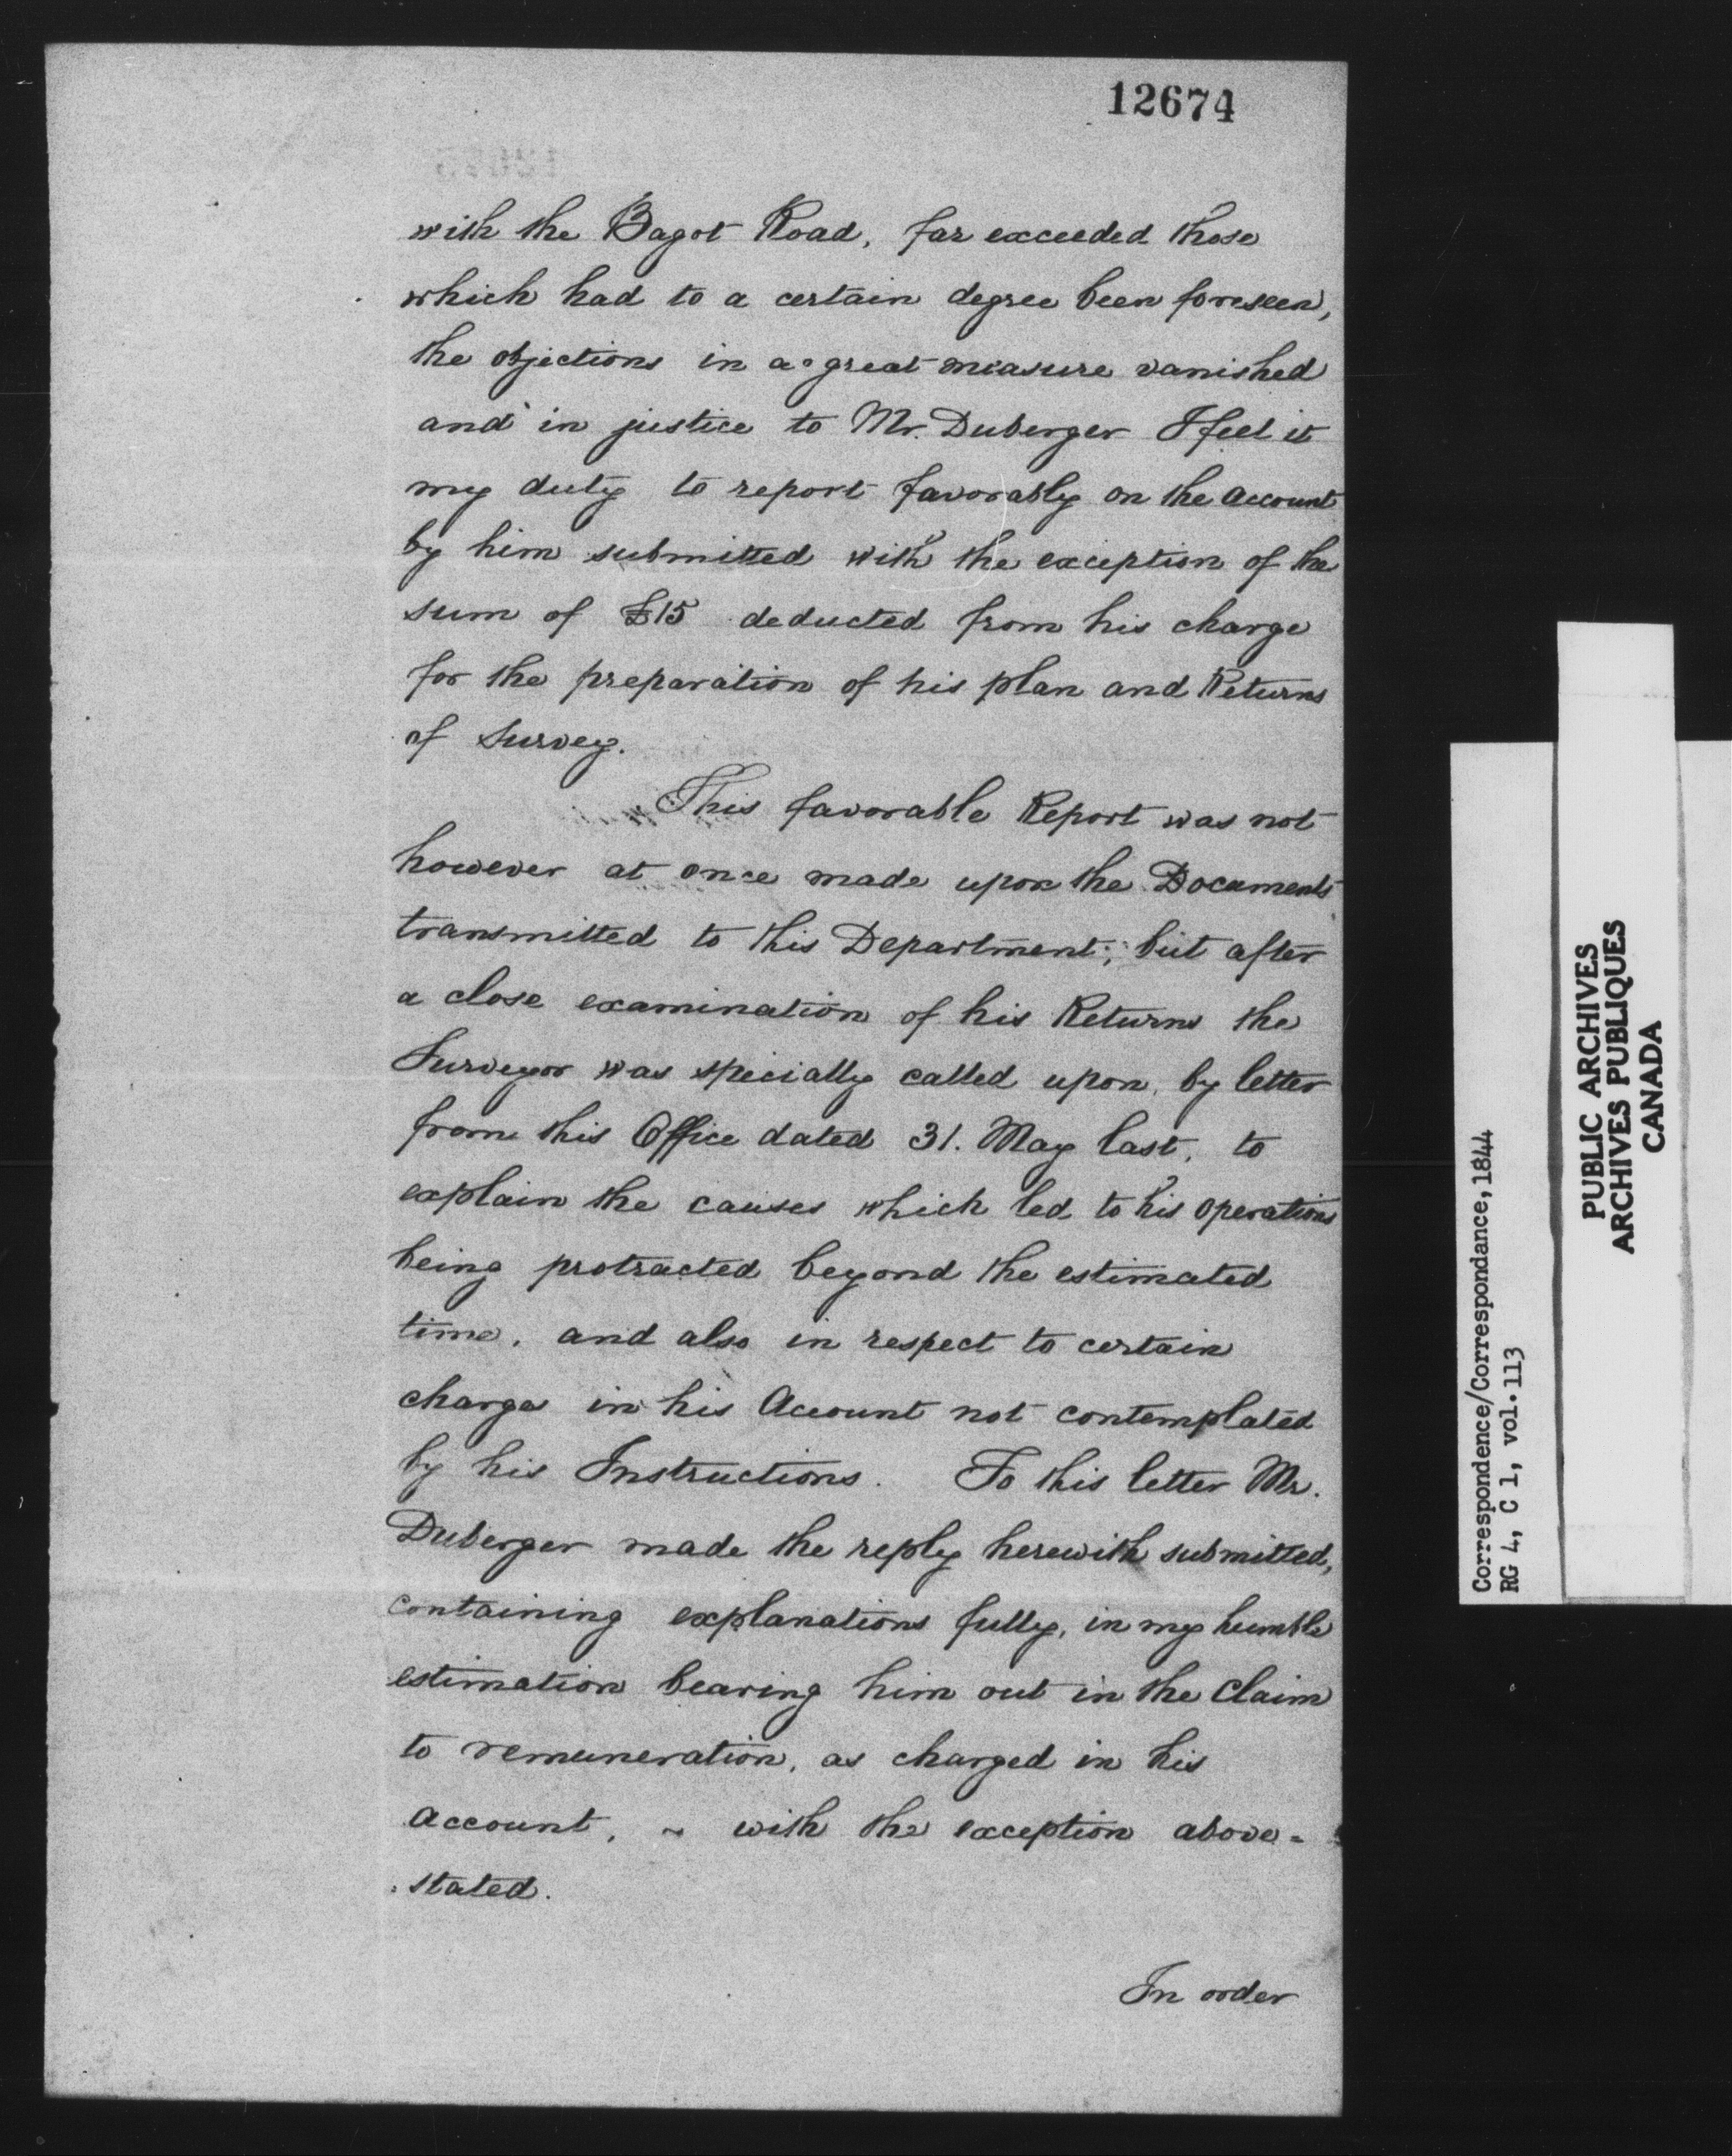 12674
with the Bagot Road, far exceeded those
which had to a certain degree been foreseen,
the objections in a great measure vanished
and in justice to Mr. Duberger I feel it
my duty to report favorably on the account
by him submitted with the exception of the
sum of £15 deducted from his charge
for the preparation of his plan and Returns
of Survey.
This favorable Report was not
however at once made upon the Documents
transmitted to this Department; but after
a close examination of his Returns the
Surveyor was specially called upon, by letter
from this Office dated 31. May last, to
explain the causes which led to his operations
being protracted beyond the estimated
time, and also in respect to certain
charges in his Account not contemplated
by his Instructions. To this letter Mr.
Duberger made the reply herewith submitted,
containing explanations fully, in my humble
estimation bearing him out in the Claim
to remuneration, as charged in his
Account, ~ with the exception above=
stated.
In order
Correspondence/Correspondance, 1844
RG 4, C 1, vol. 113
PUBLIC ARCHIVES
ARCHIVES PUBLIQUES
CANADA